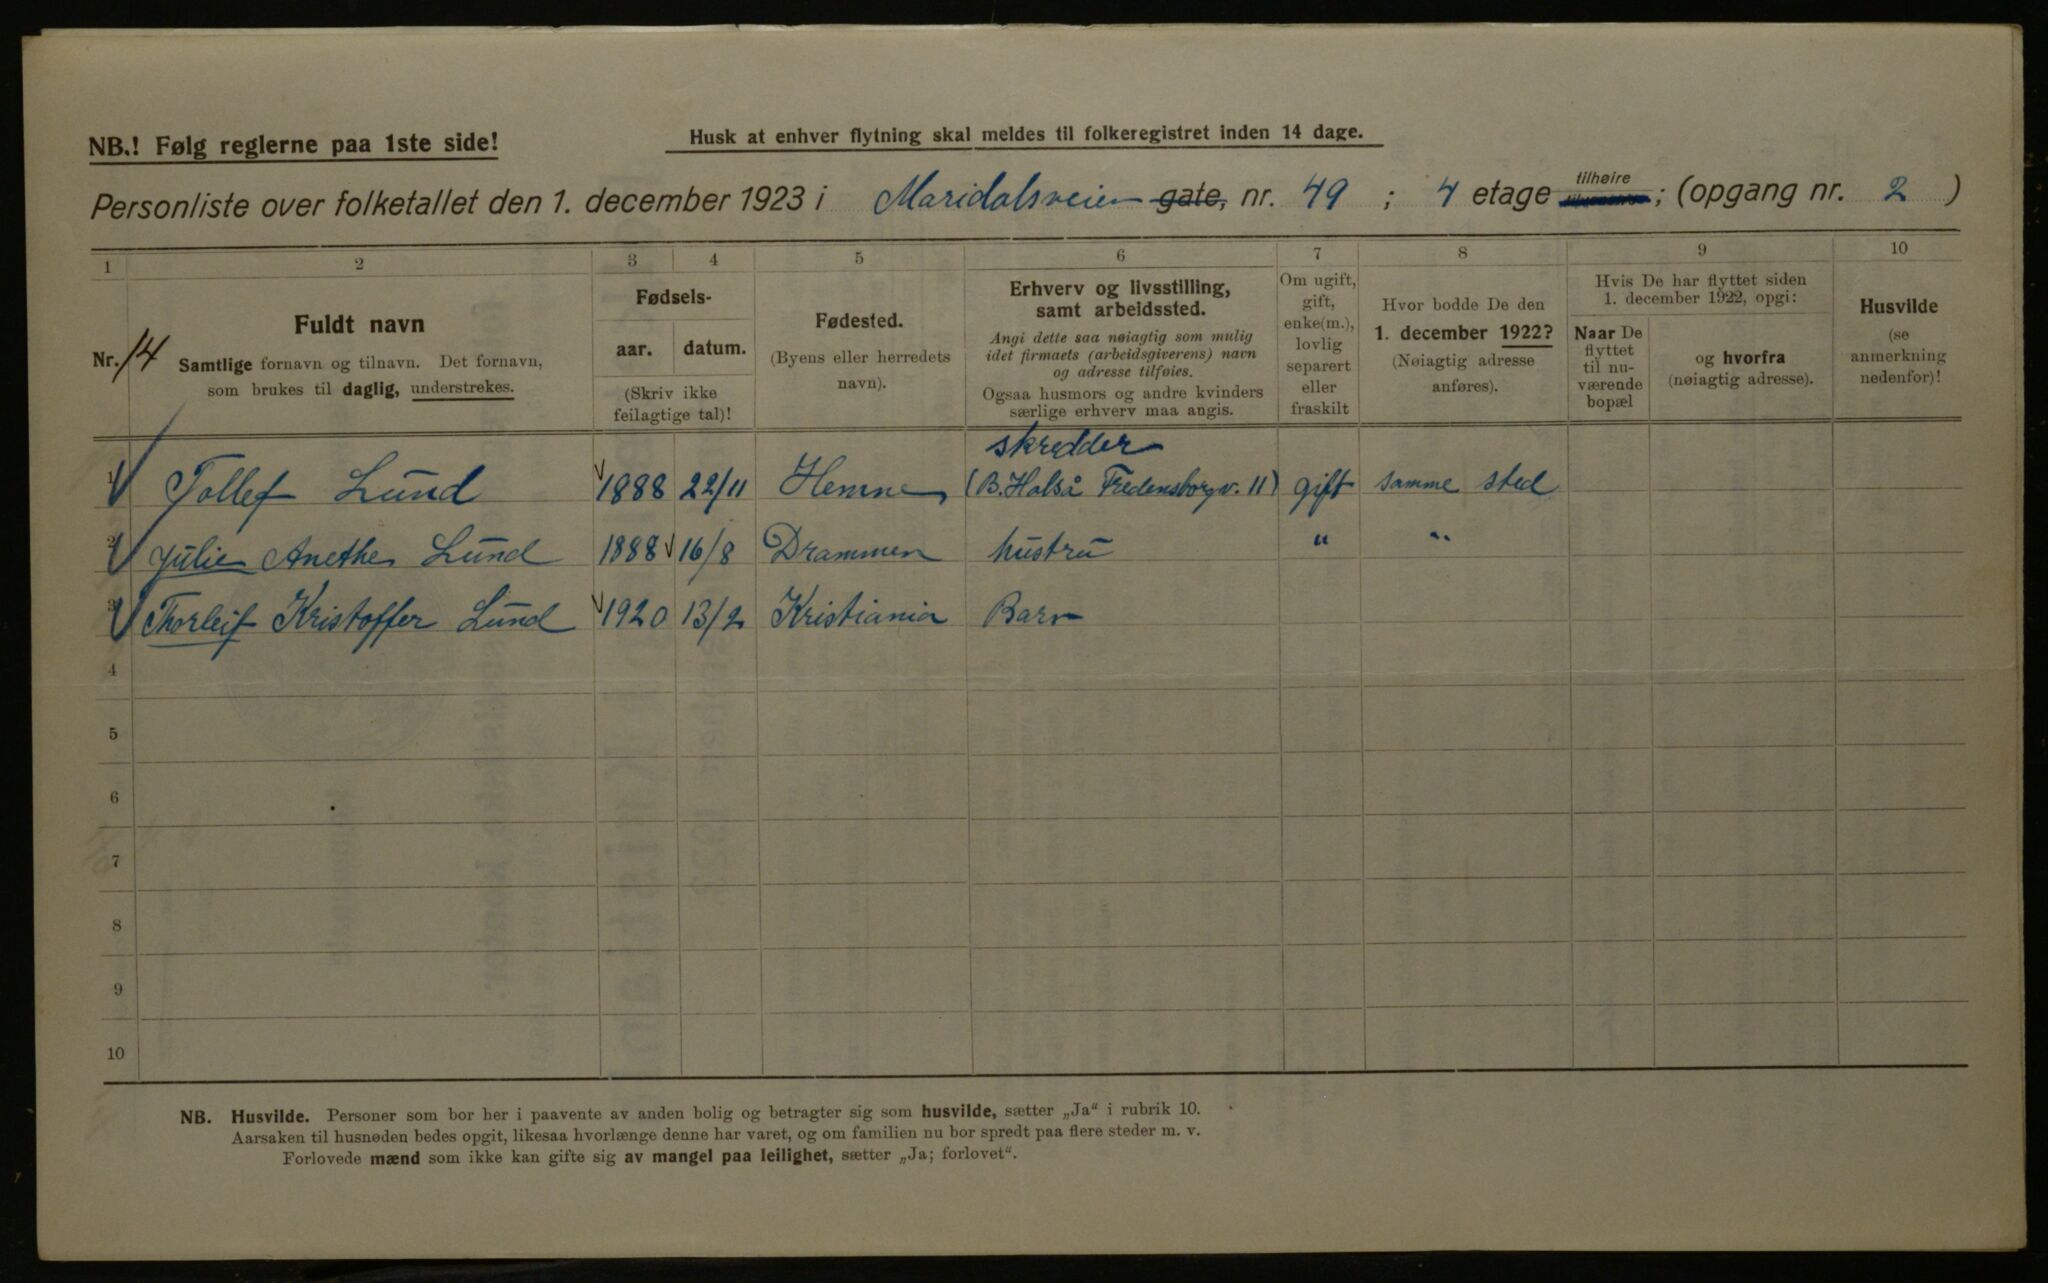 NB.! Følg reglerne paa 1ste side!
Husk at enhver flytning skal meldes til folkeregistret inden 14 dage.
Personliste over folketallet den 1. december 1923 i Maridalsveien gate, nr. 49 ; 4 etage tilhøire ; (opgang nr. 2 )
1 2 3 4 5 6 7 8 9 10
Nr. 14
Fuldt navn
Samtlige fornavn og tilnavn. Det fornavn,
som brukes til daglig, understrekes.
Fødsels-
aar. datum.
(Skriv ikke
feilagtige tal)!
Fødested.
(Byens eller herredets
navn).
Erhverv og livsstilling,
samt arbeidssted.
Angi dette saa nøiagtig som mulig
idet firmaets (arbeidsgiverens) navn
og adresse tilføies.
Ogsaa husmors og andre kvinders
særlige erhverv maa angis.
Om ugift,
gift,
enke(m.),
lovlig
separert
eller
fraskilt
Hvor bodde De den
1. december 1922?
(Nøiagtig adresse
anføres).
Hvis De har flyttet siden
1. december 1922, opgi:
Naar De
flyttet
til nu-
værende
bopæl
og hvorfra
(nøiagtig adresse).
Husvilde
(se
anmerkning
nedenfor)!
skredder
1 Tollef Lund 1888 22/11 Hemne (B. Halså Fredensborgv. 11) gift samme sted
2 Julie Anethe Lund 1888 16/8 Drammen hustru " "
3 Thorleif Kristoffer Lund 1920 13/2 Kristiania Barn
4
5
6
7
8
9
10
NB. Husvilde. Personer som bor her i paavente av anden bolig og betragter sig som husvilde, sætter „Ja“ i rubrik 10.
Aarsaken til husnøden bedes opgit, likesaa hvorlænge denne har varet, og om familien nu bor spredt paa flere steder m. v.
Forlovede mænd som ikke kan gifte sig av mangel paa leilighet, sætter „Ja; forlovet“.